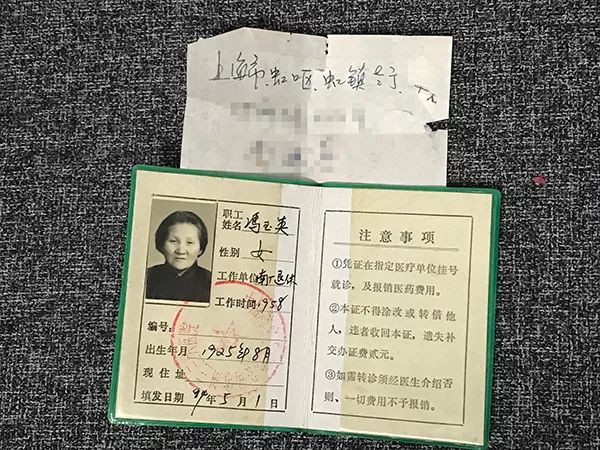 上海市.虹口区.虹镇老街
职工
姓名 冯玉英
性别 女
工作单位 南大退休
工作时间 1958
编号:
出生年月 1925年8月
现住址
填发日期 94年5月1日
注意事项
①凭证在指定医疗单位挂号
就诊，及报销医药费用。
②本证不得涂改或转借他
人，违者收回本证，遗失补
交办证费贰元。
③如需转诊须经医生介绍否
则、一切费用不予报销。